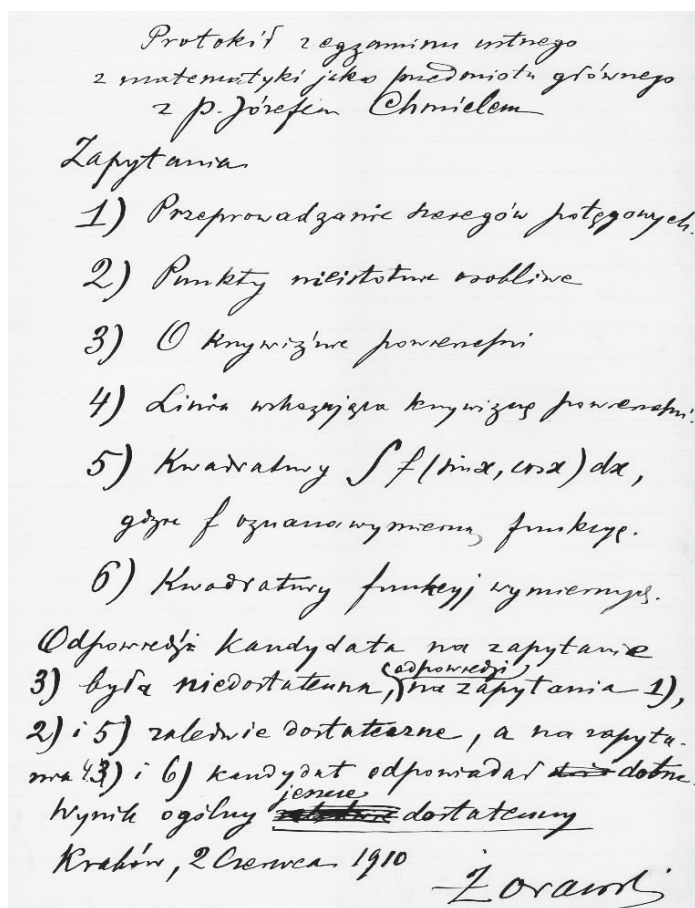 Protokół z egzaminu ustnego
z matematyki jako przedmiotu głównego
z p. Józefem Chmielem
Zapytania
1) Przeprowadzanie szeregów potęgowych.
2) Punkty nieistotnie osobliwe
3) O krzywiźnie powierzchni
4) Linia wskazująca krzywiznę powierzchni.
5) Kwadratury ∫ f (sin x, cos x) dx,
gdzie f oznacza wymierną funkcyę.
6) Kwadratury funkcyj wymiernych.
Odpowiedź kandydata na zapytanie
3) była niedostateczna, (odpowiedzi) na zapytania 1),
2) i 5) zaledwie dostateczne, a na zapyta-
nia 4) i 6) kandydat odpowiadał dobrze.
Wynik ogólny jeszcze dostateczny
Kraków, 2 Czerwca 1910
Żorawski